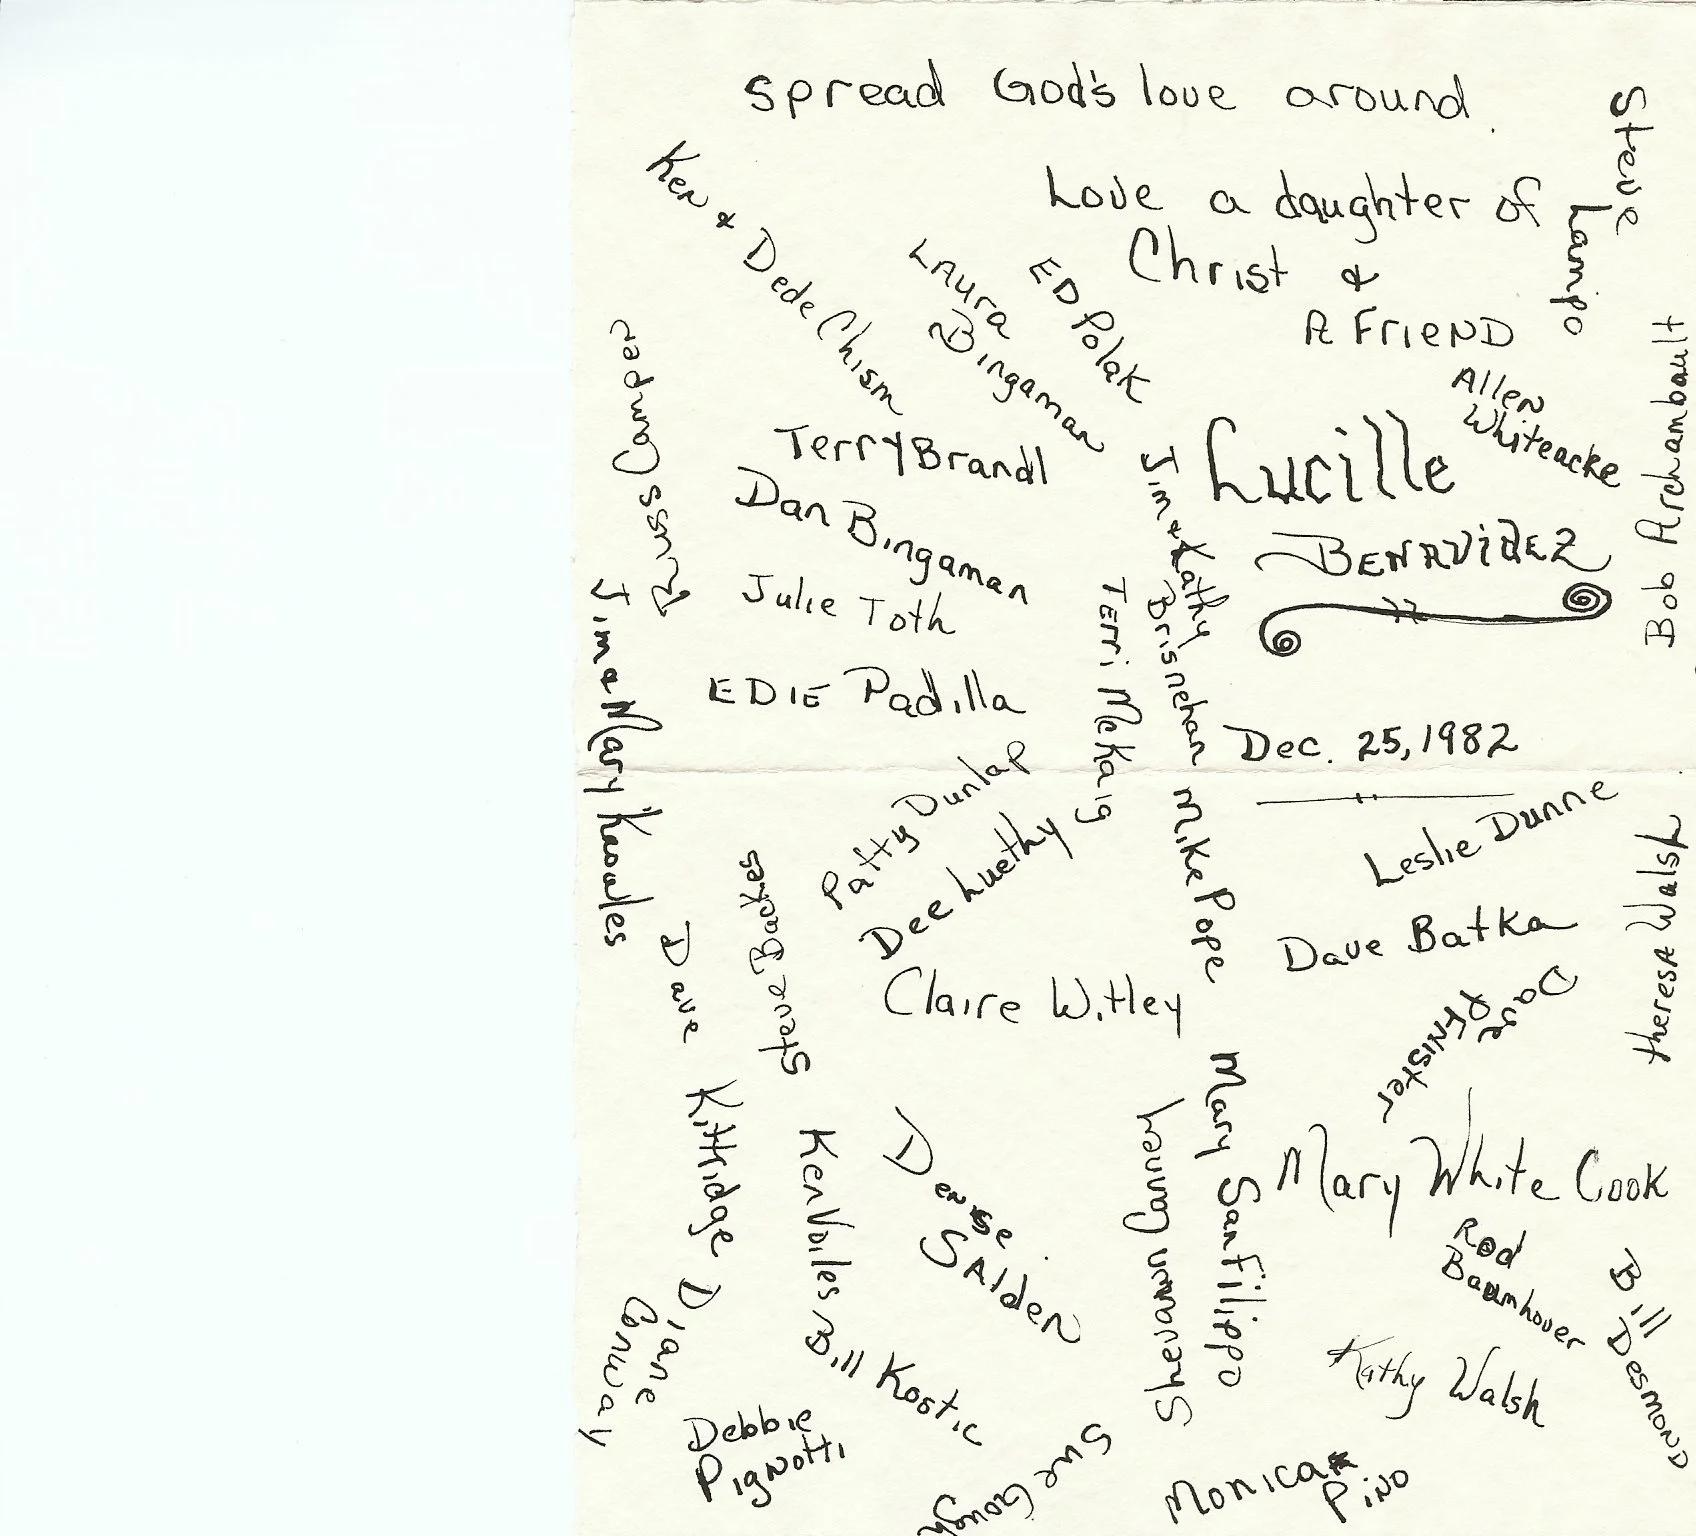 spread God's love around.
Love a daughter of
Christ &
A FriEND
Lucille
BENAVIDEZ
Dec. 25, 1982
Steve Lampo
Ken & Dede Chism
Laura
Bingaman
ED Polak
Allen
Whiteacke
Bob Archambault
Russ Camper
Terry Brandl
Dan Bingaman
Julie Toth
EDIE Padilla
Jim & Kathy
Brisnehan
Terri McKaig
Jim & Mary Knowles
Patty Dunlap
Dee Luethy
Claire Witley
Mike Pope
Leslie Dunne
Dave Batka
Dave
PFNister
theresa Walsh
Steve Backes
Dave Kittridge
Ken Voiles
Denise
SAlden
Mary SanFilippo
Shevawn Cannely
Mary White Cook
Rod
Baumhover
Bill Desmond
Kathy Walsh
Diane
Conway
Bill Kostic
Debbie
Pignotti
Sue Gough
Monica
Pino